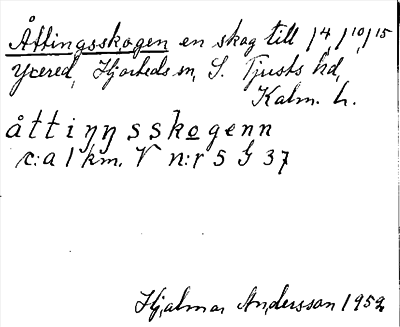 Åttingsskogen en skog till 1/4, 1/10, 1/15
Ycered, Hjorteds sn, S. Tjusts hd,
Kalm. L.
åttiŋŋsskogenn
c:a 1 km. V n:r 5 G 37
Hjalmar Andersson 1952